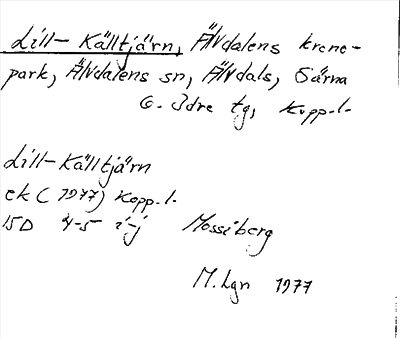 Lill-Källtjärn, Älvdalens krono-
park, Älvdalens sn, Älvdals, Särna
o. Idre tg, Kopp. l.
Lill-Källtjärn
ek (1977) Kopp. l.
15D 4-5 i-j Mossiberg
M. Lgn 1977